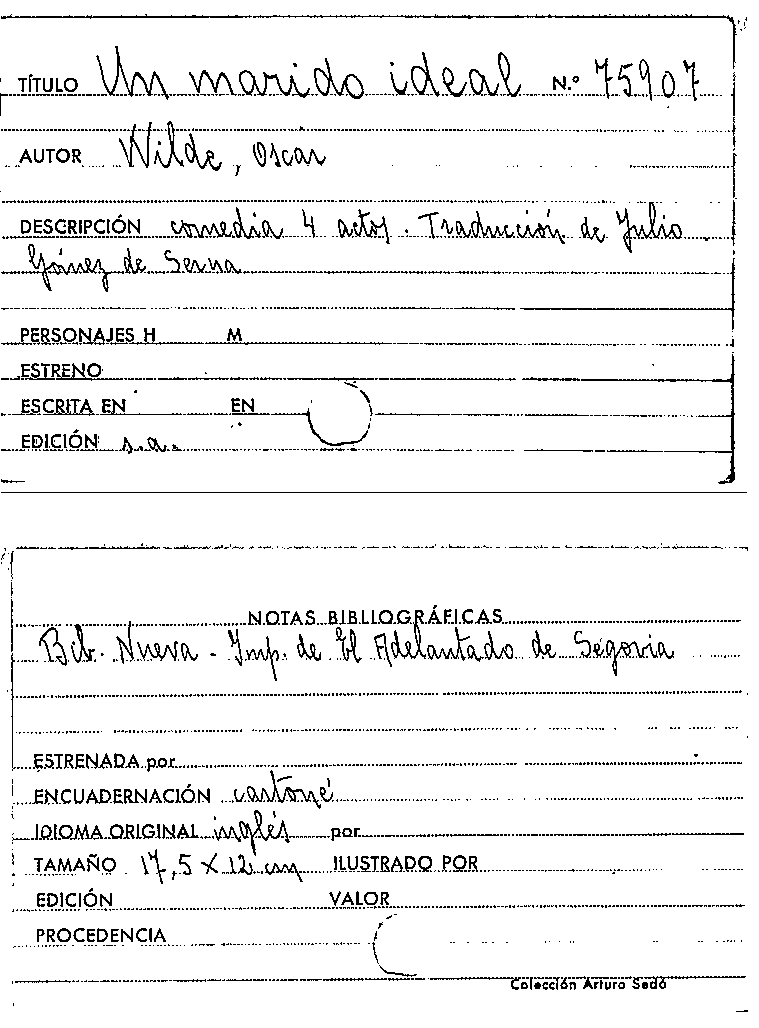 TÍTULO Un marido ideal N.º 75907
AUTOR Wilde, Oscar
DESCRIPCIÓN comedia 4 actos. Traducción de Julio
Gómez de Serna
PERSONAJES H M
ESTRENO
ESCRITA EN EN
EDICIÓN s.a.
NOTAS BIBLIOGRÁFICAS
Bib. Nueva - Imp. de El Adelantado de Segovia
ESTRENADA por
ENCUADERNACIÓN cartoné
IDIOMA ORIGINAL inglés por
TAMAÑO 17,5 X 12 cm ILUSTRADO POR
EDICIÓN VALOR
PROCEDENCIA
Colección Arturo Sedó